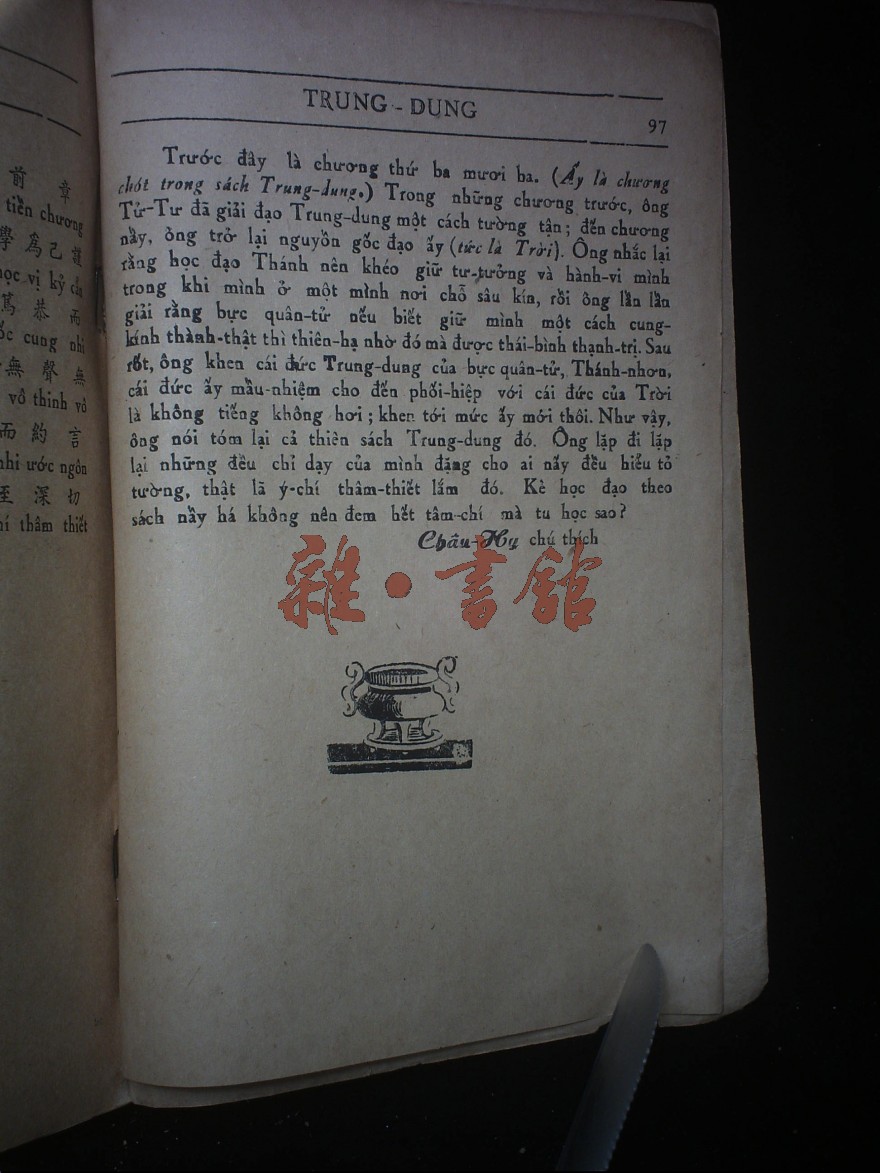 前 章
tiền chương
學 爲 己 謹
học vị kỷ cẩn
篤 恭 而
ốc cung nhi
無 聲 無
vô thinh vô
而 約 言
nhi ước ngôn
至 深 切
hí thâm thiết
TRUNG - DUNG
97
Trước đây là chương thứ ba mươi ba. (Ấy là chương
chót trong sách Trung-dung.) Trong những chương trước, ông
Tử-Tư đã giải đạo Trung-dung một cách tường tận; đến chương
nầy, ông trở lại nguyồn gốc đạo ấy (tức là Trời). Ông nhắc lại
rằng học đạo Thánh nên khéo giữ tư-tưởng và hành-vi mình
trong khi mình ở một mình nơi chỗ sâu kín, rồi ông lần lần
giải rằng bực quân-tử nếu biết giữ mình một cách cung-
kính thành-thật thì thiên-hạ nhờ đó mà được thái-bình thạnh-trị. Sau
rốt, ông khen cái đức Trung-dung của bực quân-tử, Thánh-nhơn,
cái đức ấy mầu-nhiệm cho đến phối-hiệp với cái đức của Trời
là không tiếng không hơi; khen tới mức ấy mới thôi. Như vậy,
ông nói tóm lại cả thiên sách Trung-dung đó. Ông lặp đi lặp
lại những đều chỉ dạy của mình đặng cho ai nấy đều hiểu tỏ
tường, thật lã ý-chí thâm-thiết lắm đó. Kẻ học đạo theo
sách nầy há không nên đem hết tâm-chí mà tu học sao?
Châu-Hy chú thích
雜・書館